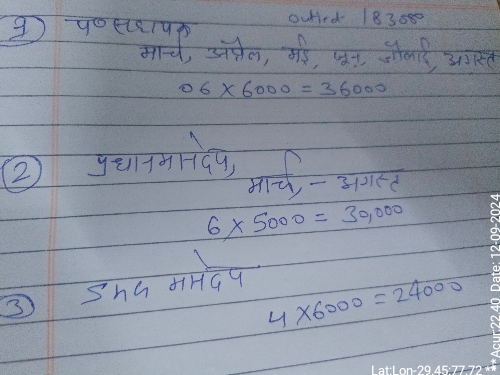 1) पं०सहायक outlet 183080
मार्च, अप्रैल, मई, जून, जौलाई, अगस्त
06 x 6000 = 36000
2 प्रधानमानदेय,
मार्च, - अगस्त
6 x 5000 = 30,000
3 मानदेय
4 x 6000 = 24000
Lat:Lon-29.45:77.72 ** Acur-22.40 Date: 12-09-2024